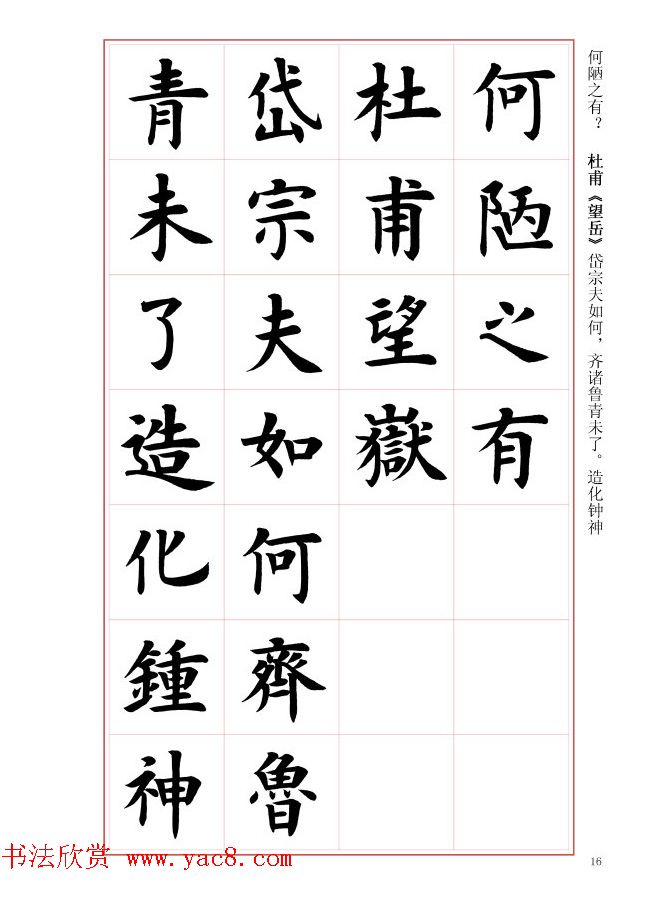 何陋之有？ 杜甫《望岳》岱宗夫如何，齐诸鲁青未了。造化钟神
何陋之有
杜甫望嶽
岱宗夫如何齊魯
青未了造化鍾神
书法欣赏 www.yac8.com
16